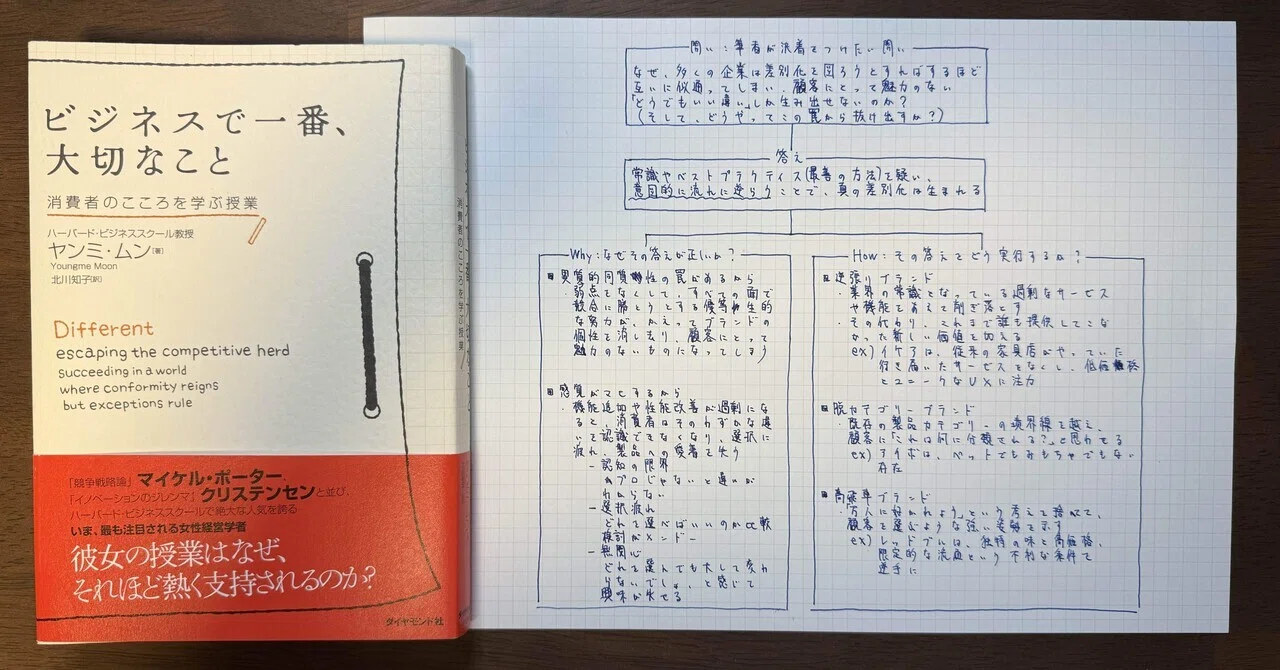 ビジネスで一番、
大切なこと
消費者のこころを学ぶ授業
ハーバード・ビジネススクール教授
ヤンミ・ムン[著]
Youngme Moon
北川知子[訳]
Different
escaping the competitive herd
succeeding in a world
where conformity reigns
but exceptions rule
「競争戦略論」マイケル・ポーター、
「イノベーションのジレンマ」クリステンセンと並び、
ハーバード・ビジネススクールで絶大な人気を誇る
いま、最も注目される女性経営学者
彼女の授業はなぜ、
それほど熱く支持されるのか?
ダイヤモンド社
消費者のこころを学ぶ授業
問い:筆者が決着をつけたい問い
なぜ、多くの企業は差別化を図ろうとすればするほど
互いに似通ってしまい、顧客にとって魅力のない
「どうでもいい違い」しか生み出せないのか?
(そして、どうやってこの罠から抜け出すか?)
答え
常識やベストプラクティス(最善の方法)を疑い、
意図的に流れに逆らうことで、真の差別化は生まれる
Why:なぜその答えが正しいか?
異質的同質性の罠があるから
・弱点をなくして、すべての面で
競合に勝とうとする優等生的
な努力が、かえってブランドの
個性を消し去り、顧客にとって
魅力のないものになってしまう
感覚がマヒするから
・機能追加や性能改善が過剰にな
ると、消費者はそのわずかな違
いを認識できなくなり、選択に
疲れ、製品への愛着を失う
－認知の限界
プロじゃないと違いが
わからない
－選択疲れ
どれを選べばいいのか比較
検討がメンドー
－無関心
どれを選んでも大して変わ
らないでしょ、と感じて
興味が失せる
How:その答えをどう実行するか?
逆張りブランド
・業界の常識となっている過剰なサービス
や機能をあえて削ぎ落とす
・その代わり、これまで誰も提供してこな
かった新しい価値を加える
ex) イケアは、従来の家具店がやっていた
行き届いたサービスをなくし、低価格
とユニークなUXに注力
脱カテゴリーブランド
・既存の製品カテゴリーの境界線を越え、
顧客に「これは何に分類される?」と思わせる
ex) アイボは、ペットでもおもちゃでもない
存在
高飛車ブランド
・「万人に好かれよう」という考えを捨てて、
顧客を選ぶような強い姿勢を示す
ex) レッドブルは、独特の味と高価格、
限定的な流通という不利な条件を
逆手に